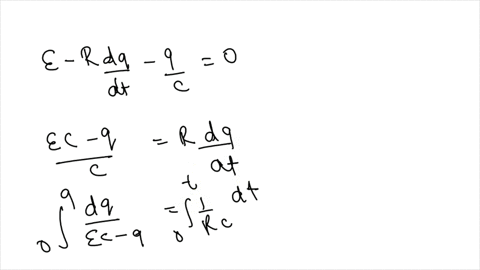 ε - R dq/dt - q/c = 0
εc - q / c = R dq/dt
∫₀^q dq/εc - q = ∫₀^t 1/Rc dt